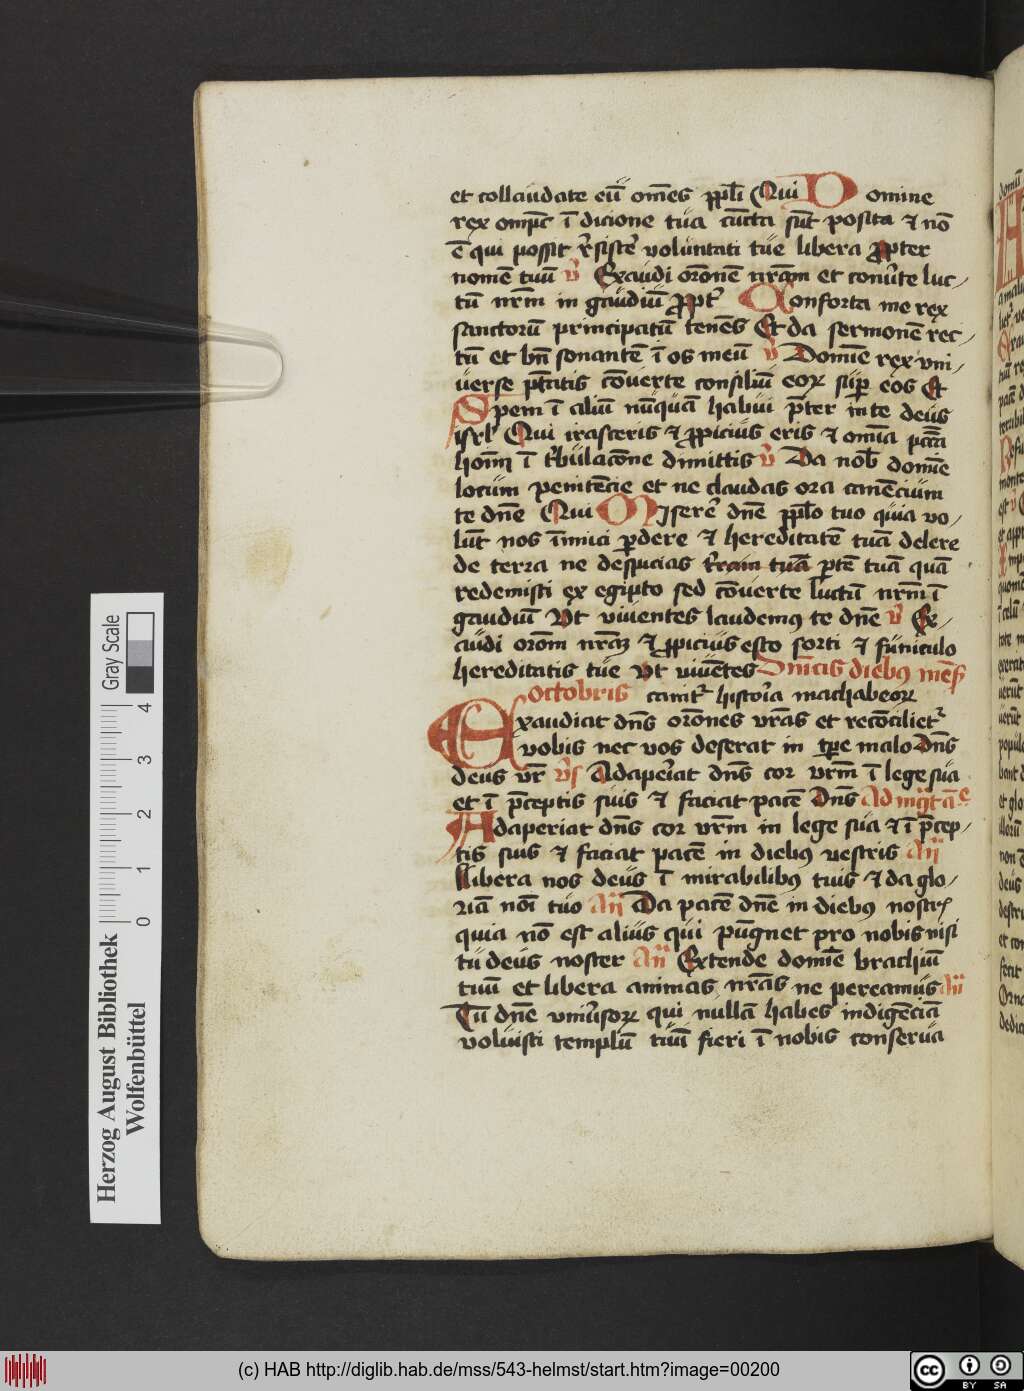 et collaudate eū om̄es pp̄li Qui Domine
rex omp̄c ī dicione tua cūcta sūt posita ⁊ nō
ē qui possit r̄sisteͬ voluntati tue libera ꝓpter
nomē tuū v̄ Exaudi orōnē nrām et conuͬte luc-
tū nrm̄ in gaudiū ꝓptͬ Conforta me rex
sanctorū principatū tenēs Et da sermonē rec-
tū et bn̄ sonantē ī os meū v̄ Domīe rex vni-
uerse ptātis cōuerte consiliū eoꝝ suꝑ eos Et
Spem ī aliū nūquā habui p̄ter in te deus
isrl̄ Qui irasceris ⁊ ꝓpicius eris ⁊ omīa pctā
hoīm ī tͬbulacōne dimittis v̄ Da nob̄ domīe
locum penitēcie et ne claudas ora canēcium
te dn̄e Qui Misereͬ dn̄e pp̄lo tuo quia vo-
lūt nos īimici ꝑdere ⁊ hereditatē tuā delere
de terra ne despicias tͬram tuā ꝑtē tuā quā
redemisti ex egipto sed cōuerte luctū nrm̄ ī
gaudiū Vt viuentes laudemꝰ te dn̄e v̄ Ex-
audi orōm nrāꝫ ⁊ ꝓpicius esto sorti ⁊ funiculo
hereditatis tue Vt viuētes Dnīcis diebꝰ mēs̄
octobris cantͬ historīa machabeoꝝ
Exaudiat dn̄s orōnes vrās et recōcilietͬ
vobis nec vos deserat in tꝑe malo dn̄s
deus vr̄ v̄s Adaperͬiat dn̄s cor vrm̄ ī lege sua
et ī p̄ceptis suis ⁊ faciat pacē Dn̄s Ad mgͣtāᵉ
Adaperiat dn̄s cor vrm̄ in lege sua ⁊ ī p̄cep-
tis suis ⁊ faciat pacē in diebꝰ vestris añ
Libera nos deus ī mirabilibꝰ tuis ⁊ da glo-
riā noī tuo Añ Da pacē dn̄e in diebꝰ nostrͬ
quia nō est alius qui pugnet pro nobis nisi
tu deus noster Añ Extende domīe brachiū
tuū et libera animas nrās ne pereamus añ
Tu dn̄e vniuͬsoꝝ qui nullā habes indigēciā
voluisti templū tuū fieri ī nobis conserua
Gray Scale
4 3 2 1 0
Herzog August Bibliothek
Wolfenbüttel
(c) HAB http://diglib.hab.de/mss/543-helmst/start.htm?image=00200
cc BY SA